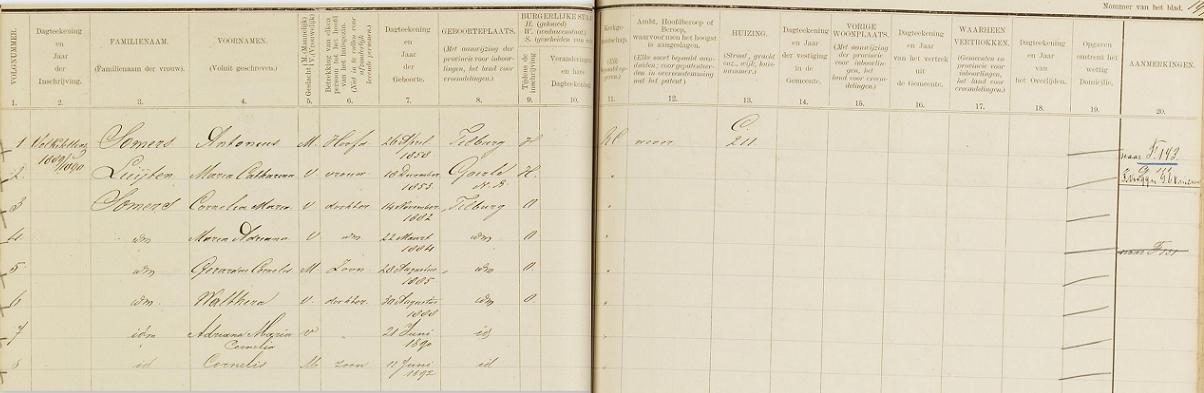 Nummer van het blad.
VOLGNUMMER.
Dagteekening en Jaar der Inschrijving.
FAMILIENAAM.
(Familienaam der vrouw).
VOORNAMEN.
(Voluit geschreven.)
Geslacht M. (Mannelijk) V. (Vrouwelijk)
Betrekking van elken persoon tot het hoofd van het huisgezin.
Dagteekening en Jaar der Geboorte.
GEBOORTEPLAATS.
(Met aanwijzing der provincie voor inboorlingen, het land voor vreemdelingen.)
BURGERLIJKE STA
H. (gehuwd)
Tijdens de inschrijving
Veranderingen en hare Dagteekening
Kerkgenootschap.
Ambt, Hoofdberoep of Beroep, waarvoor men het hoogst is aangeslagen.
HUIZING.
(Straat, gracht enz., wijk, huisnummer.)
Dagteekening en Jaar der vestiging in de Gemeente.
VORIGE WOONPLAATS.
(Met aanwijzing der provincie voor inboorlingen, het land voor vreemdelingen.)
Dagteekening en Jaar van het vertrek uit de Gemeente.
WAARHEEN VERTROKKEN.
(Gemeente en provincie voor inboorlingen, het land voor vreemdelingen.)
Dagteekening en Jaar van het Overlijden.
Opgaven omtrent het wettig Domicilie.
AANMERKINGEN.
1. 2. 3. 4. 5. 6. 7. 8. 9. 10. 11. 12. 13. 14. 15. 16. 17. 18. 19. 20.
1 Volkstelling 1889/1890 Somers Antonius M. Hoofd 26 April 1858 Tilburg H RC wever C. 211 naar F 143
2 Luijten Maria Catharina V vrouw 18 December 1853 H.
3 Somers Cornelia Maria V dochter 14 November 1882 Tilburg O
4 idm Maria Adriana V idm 22 Maart 1884 idm O
5 idm Gerardus Cornelis M Zoon 28 Augustus 1885 idm O
6 idm Walthera V. dochter 30 Augustus 1888 idm O
7 idm Adriana Maria Cornelia V 21 Juni 1890 id
8 id Cornelis M zoon 11 Juni 1892 id